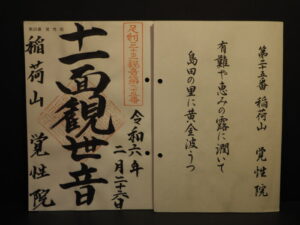 第二十五番 稲荷山 覚性院
有難や恵みの露に潤いて
島田の里に黄金波うつ
令和六年
二月
足利三十三観音第二十五番
十一面観世音
稲荷山 覚性院